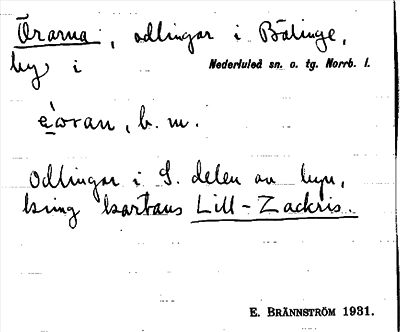 Örarna, odlingar i Bälinge,
by i Nederluleå sn. o. tg. Norrb. l.
b. m.
odlingar i S. delen av byn,
kring kartans Lill-Zackris.
E. BRÄNNSTRÖM 1931.